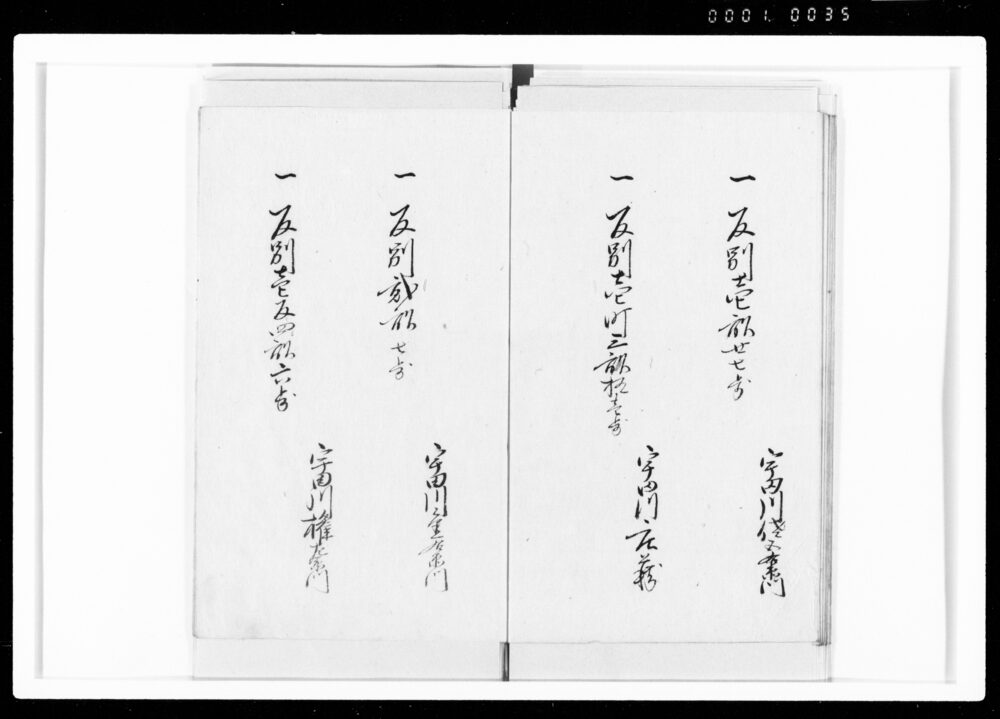 0001. 0035
一 反別壱畝廿七歩
宇田川 右衛門
一 反別壱町三畝拾壱歩
宇田川庄蔵
一 反別弐畝七歩
宇田川 右衛門
一 反別壱反四畝六歩
宇田川権左衛門